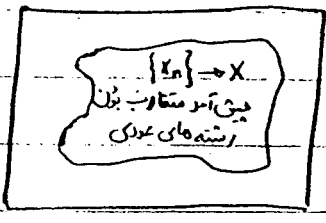 {xn} → X
پیش آمد متقارب بودن
رشته های عددی